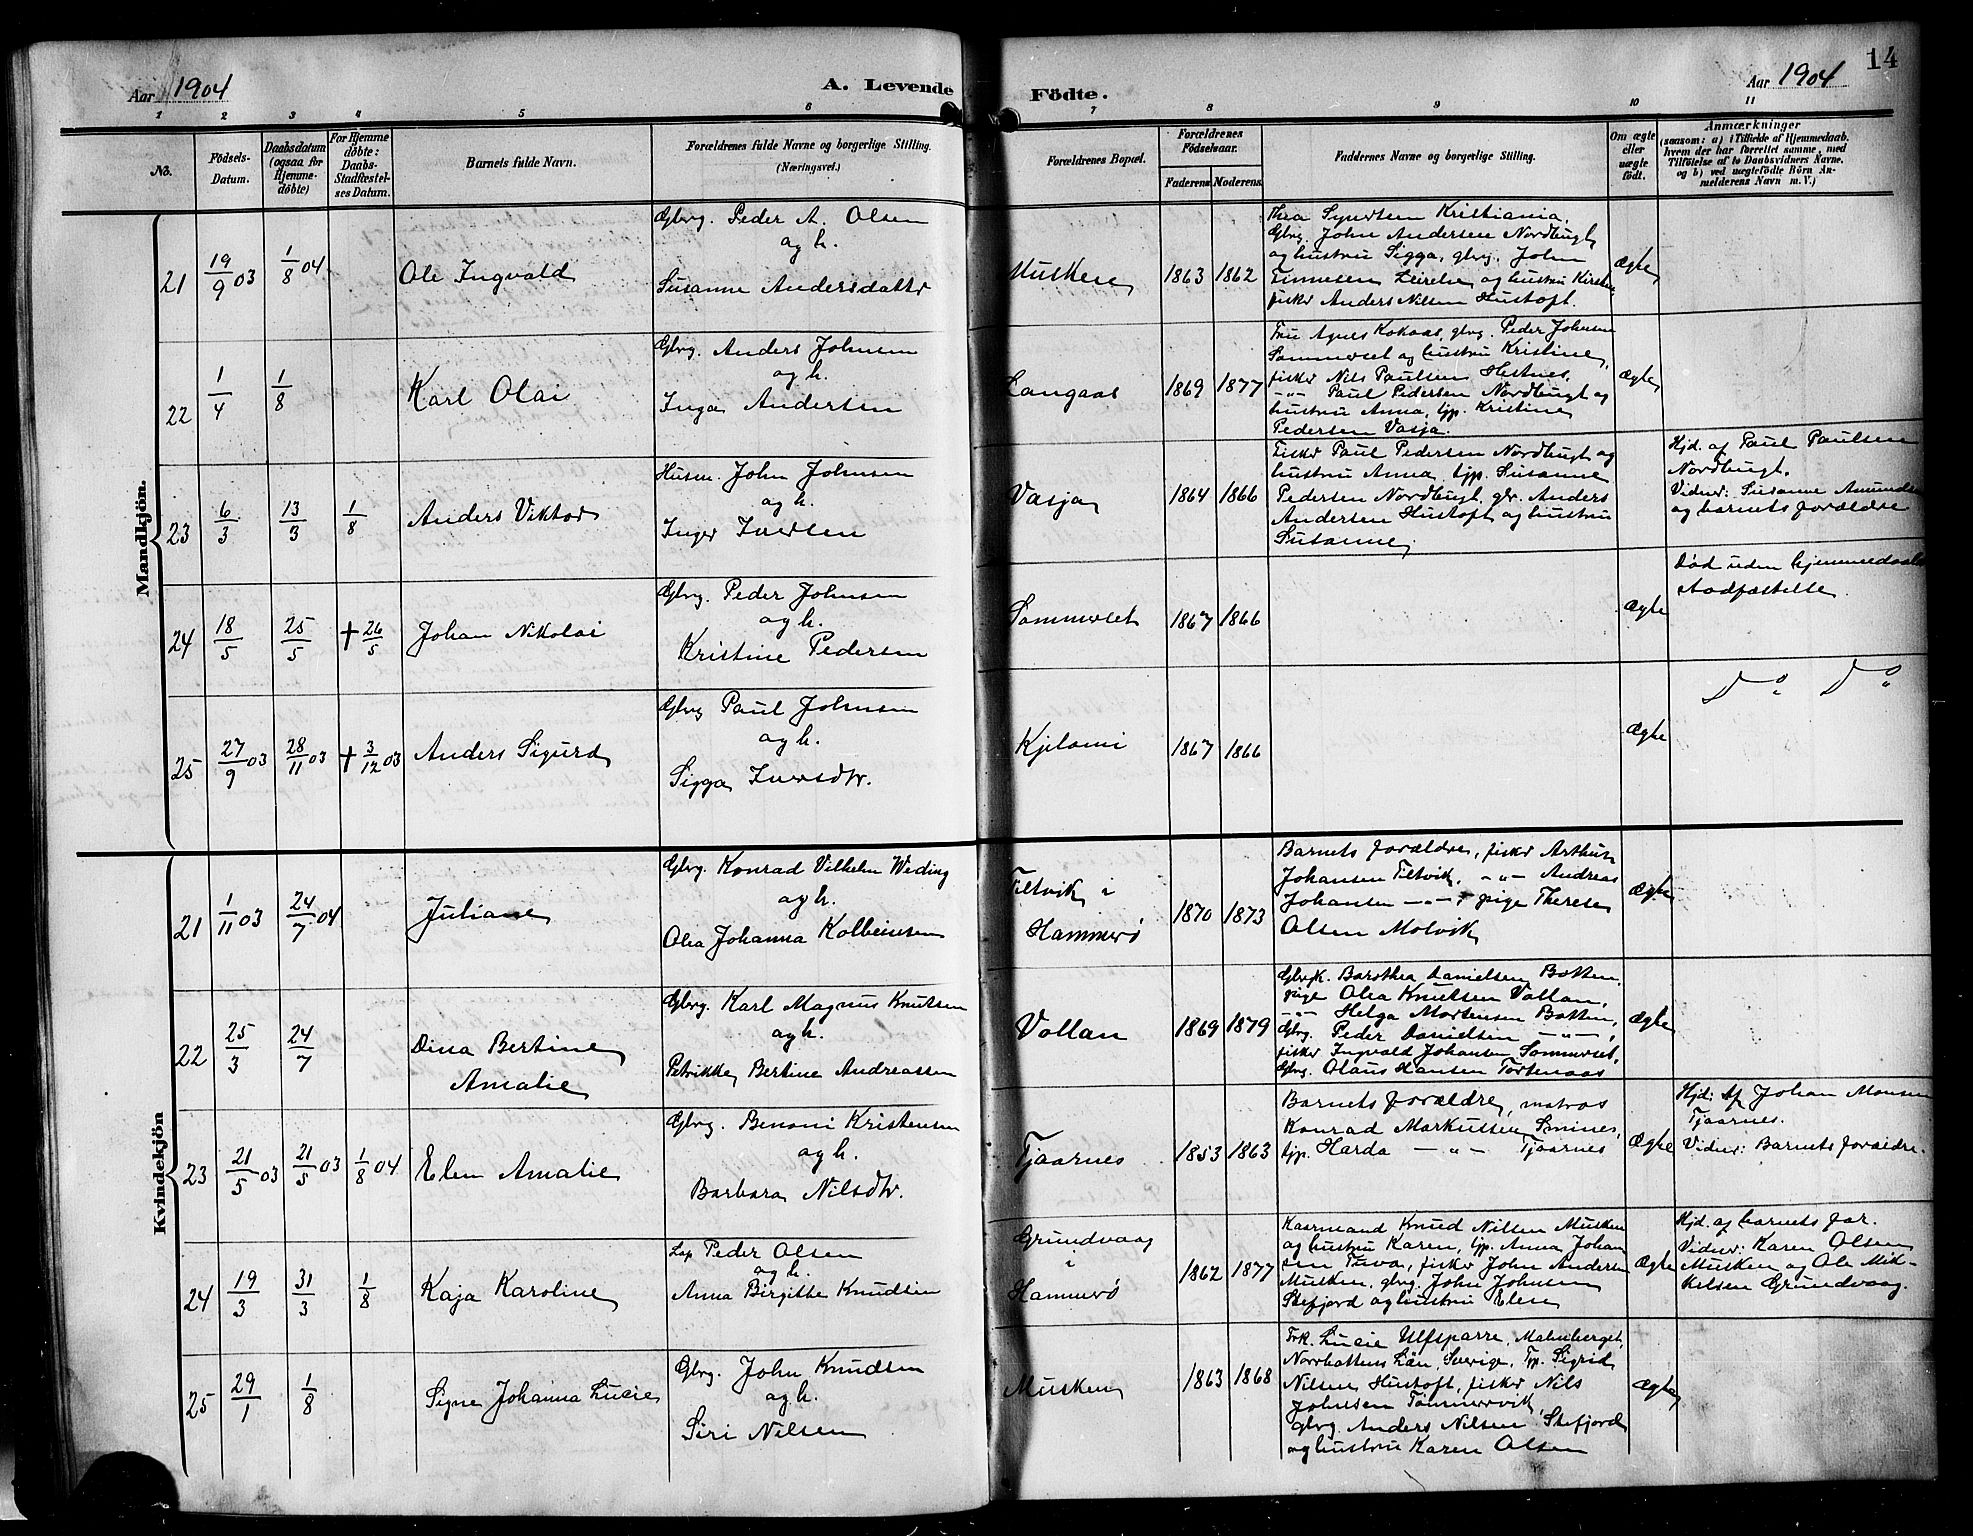 14
Aar 1904
A. Levende Födte.
Aar 1904
1 2 3 4 5 6 7 8 9 10 11
No.
Födsels-
Datum.
Daabsdatum
(ogsaa for
Hjemme-
döbte)
For Hjemme
döbte:
Daabs-
Stadfæstel-
ses Datum.
Barnets fulde Navn.
Forældrenes fulde Navne og borgerlige Stilling.
(Næringsvei.)
Forældrenes Bopæl.
Forældrenes
Födselsaar.
Faderens
Moderens
Faddernes Navne og borgerlige Stilling.
Om ægte
eller
uægte
födt.
Anmærkninger
(saasom: a) i Tilfælde af Hjemmedaab.
hvem der har forrettet samme, med
Tilföielse af to Daabsvidners Navne.
og b) ved uægtefödte Börn An-
melderens Navn m. V.)
Mandkjön.
21
19/9 03
1/8 04
Ole Ingvald
Gbrg. Peder A. Olsen
og h.
Susanne Andersdatter
Musken
1863
1862
Thea Syvertsen Kristiania,
Gbrg. John Andersen Nordbugt
og hustru Sigga, gbrg. John
Finnesen og hustru
fisker Anders Nilsen Hustoft
Ægte
22
1/4
1/8
Karl Olai
Gbrg. Anders Johnsen
og h.
Inga Andersen
Langaas
1869
1877
Fru Agnes Kokaas, gbrg. Peder Johnsen
Sommerset og hustru Kristine,
fisker Nils Paulsen Hestnes,
-"- Paul Pedersen Nordbugt og
hustru Anna, tjp. Kristine
Pedersen Vasja.
Ægte
23
6/3
13/3
1/8
Anders Viktor
Husm. John Johnsen
og h.
Inger Iversen
Vasja
1864
1866
Fisker Paul Pedersen Nordbugt og
hustru Anna, tjp. Susanne
Pedersen Nordbugt, gbr. Anders
Andersen Hustoft og hustru
Susanne
Hjd. af Paul Paulsen
Nordbugt.
Vidner: Susanne Amundsen
og barnets forældre
24
18/5
25/5
† 26/5
Johan Nikolai
Gbrg. Peder Johnsen
og h.
Kristine Pedersen
Sommerset
1867
1866
Ægte
Död uden hjemmedaabs
stadfæstelse
25
27/9 03
28/11 03
† 3/12 03
Anders Sigurd
Gbrg Paul Johnsen
og h.
Sigga Iversdtr.
Kjelomi
1867
1866
Ægte
Do Do
Kvindekjön
21
1/11 03
24/7 04
Juliane
Gbrg. Konrad Vilhelm Weding
og h.
Olea Johanna Kolbeinsen
Tiltvik i
Hammerö
1870
1873
Barnets forældre, fisker Arthur
Johansen Tiltvik, -"- Andreas
Johansen -"-, pige Therese
Olsen Molvik
Ægte
22
25/3
24/7
Dina Bertine
Amalie
Gbrg. Karl Magnus Knutsen
og h.
Petrikke Bertine Andreassen
Vollan
1869
1879
Gbrgk. Barothea Danielsen Botten,
pige Olea Knutsen Vollan,
-"- Helga Mortensen Botten,
Gbrg. Peder Danielsen -"-,
fisker Ingvald Johansen Sommerset,
Gbrg. Olaus Hansen Tortenaas
Ægte
23
21/5 03
21/5 03
1/8 04
Elen Amalie
Gbrg. Benoni Kristensen
og h.
Barbara Nilsdtr.
Tjaarnes
1853
1863
Barnets forældre, matros
Konrad Markussen Smines,
tjp. Harda -"- Tjaarnes
Ægte
Hjd: af Johan Monsen
Tjaarnes.
Vidner: Barnets forældre.
24
19/3
31/3
1/8
Kaja Karoline
Lap. Peder Olsen
og h.
Anna Birgithe Knudsen
Grundvaag
i
Hammerö
1862
1877
Kaarmand Knud Nilsen Musken
og hustru Karen, tjp. Anna Johan
sen Tuva, fisker John Andersen
Musken, gbrg. John Johnsen
Stefjord og hustru Elen
Ægte
Hjd. af barnets far.
Vidner: Karen Olsen
Musken og Ole Mik-
kelsen Grundvaag.
25
29/1
1/8
Signe Johanna Lucie
Gbrg. John Knudsen
og h.
Siri Nilsen
Musken
1863
1868
Frk. Lucie Ulfsparre, Malmberget,
Norrbottens Län, Sverige, Tjp. Sigrid
Nilsen Hustoft, fisker Nils
Johnsen Tömmervik,
Gbrg. Anders Nilsen Stefjord
og hustru Karen Olsen
Ægte